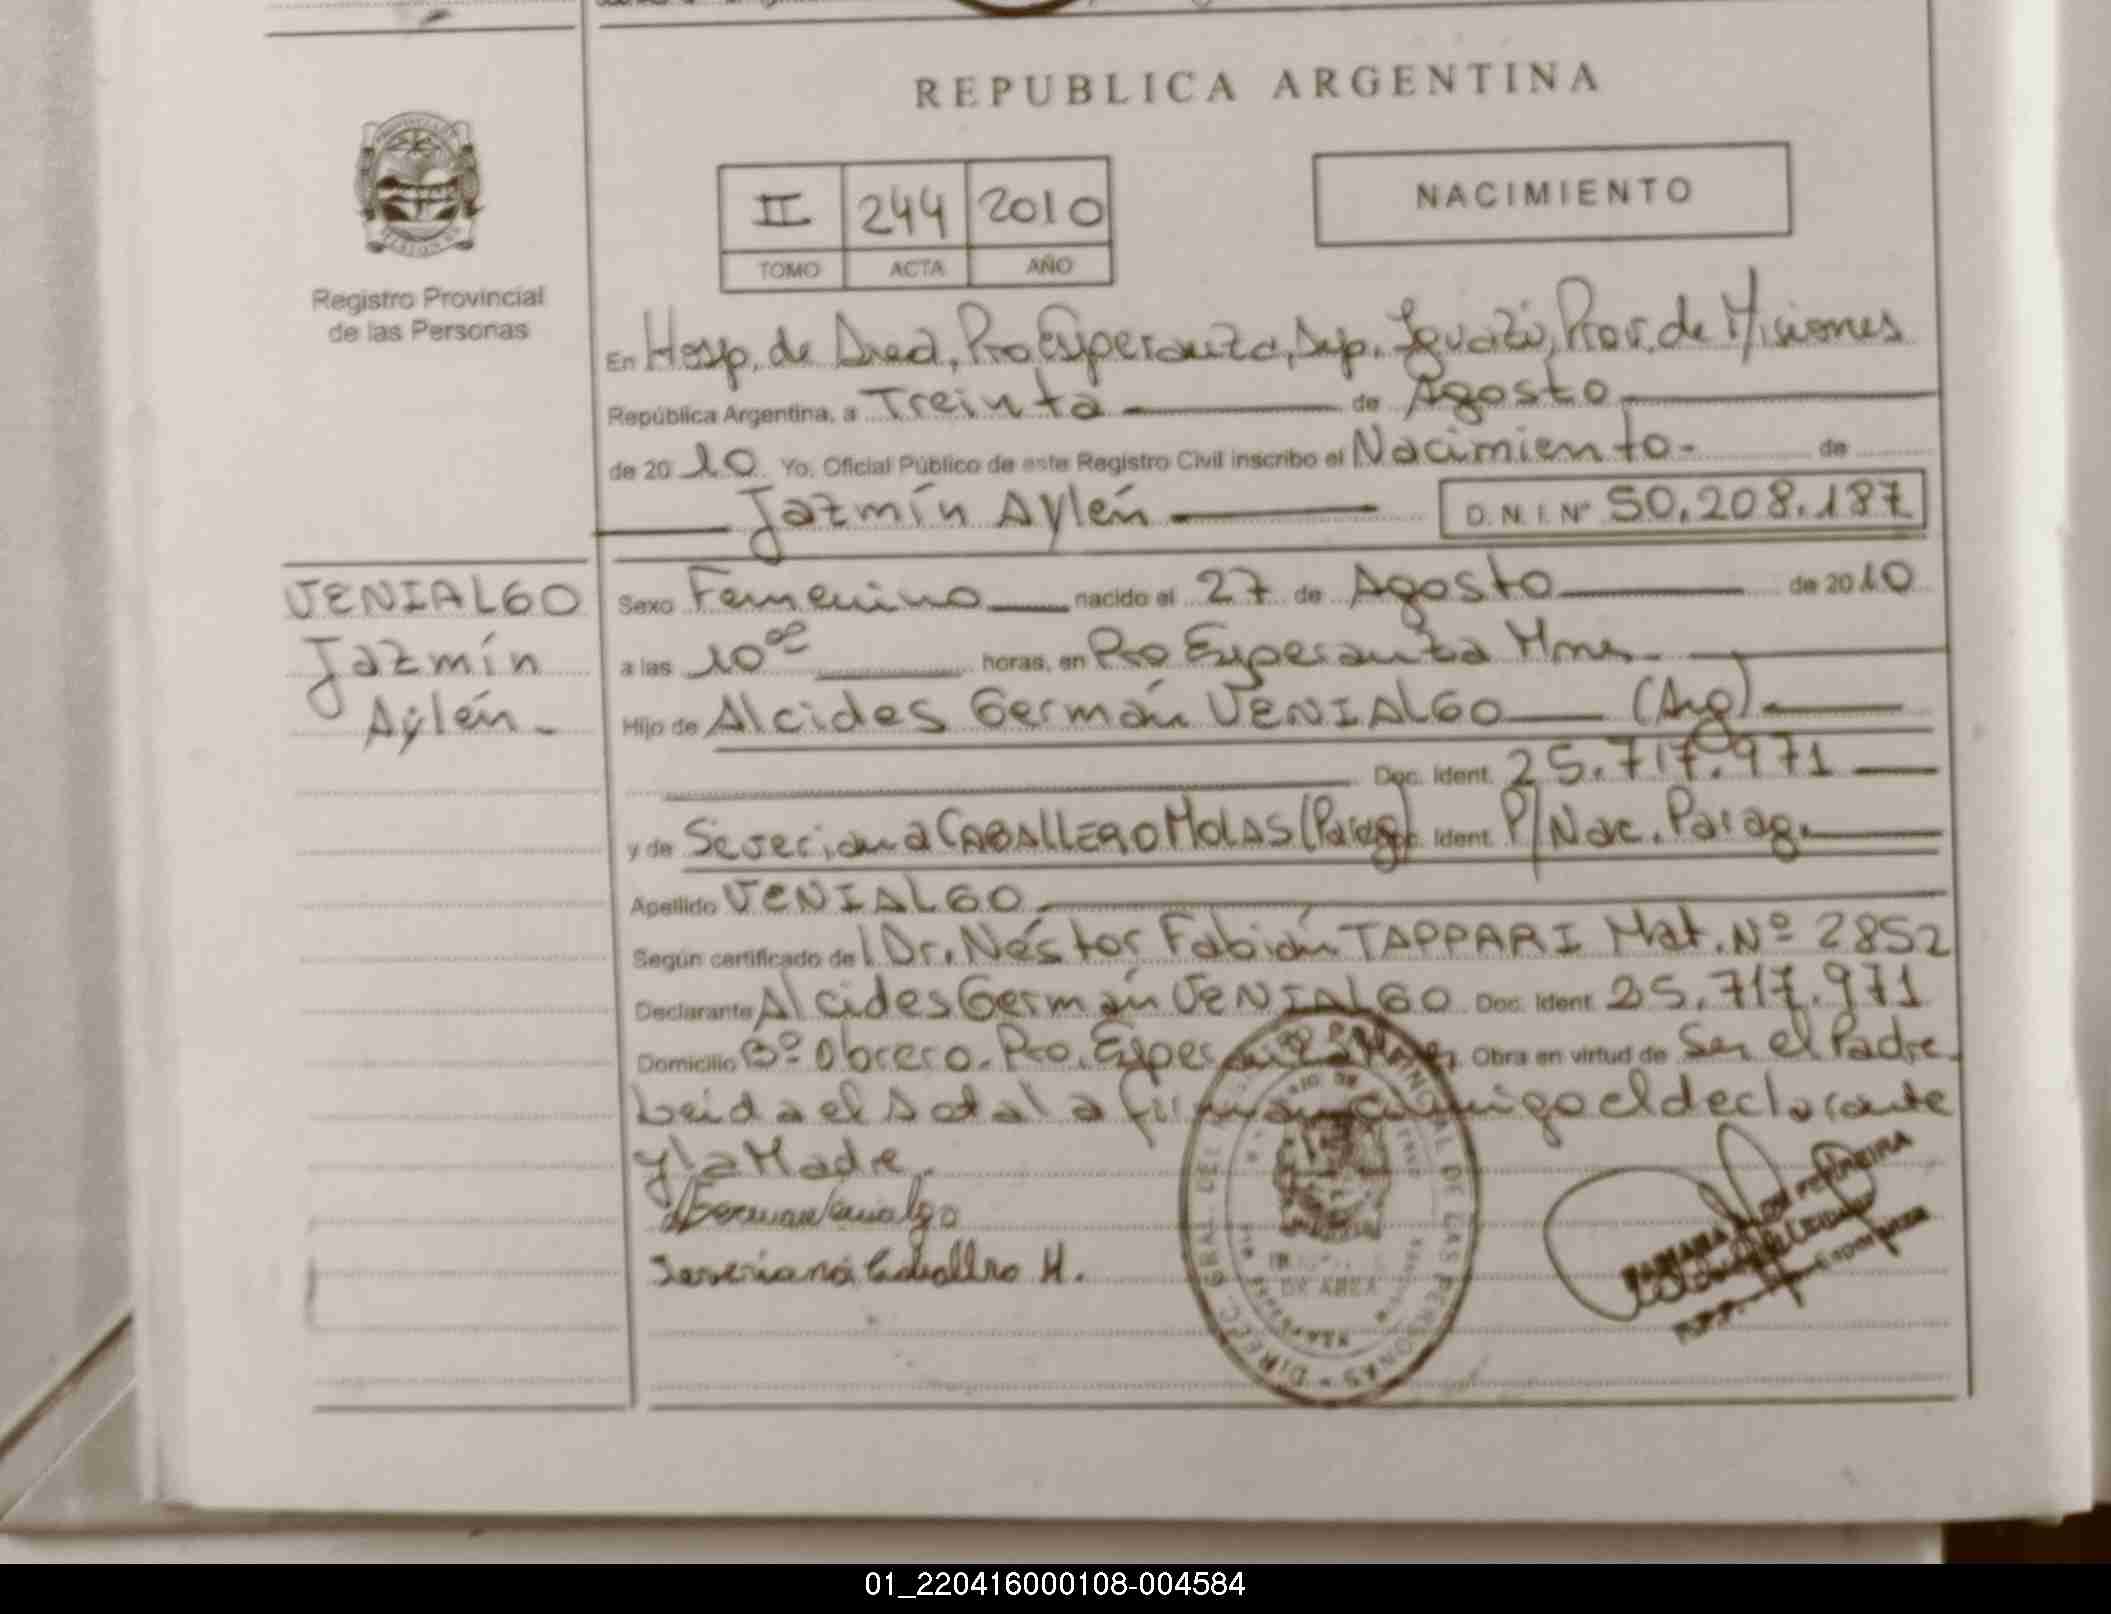 REPUBLICA ARGENTINA
II 244 2010
TOMO ACTA AÑO
NACIMIENTO
Registro Provincial
de las Personas
En Hosp. de Area, Pto Esperanza, Dep. Iguazú, Prov. de Misiones
República Argentina, a Treinta de Agosto
de 2010 Yo, Oficial Público de este Registro Civil inscribo el Nacimiento - de
Jazmín Aylén D.N.I. Nº 50.208.187
VENIALGO
Jazmín
Aylén -
Sexo Femenino nacido el 27 de Agosto de 2010
a las 10 oo horas, en Pto Esperanza Mnes.
Hijo de Alcides Germán VENIALGO (Arg)
Doc. Ident. 25.717.971
y de Severiana CABALLERO MOLAS (Parag) Ident. P/Nac. Parag.
Apellido VENIALGO
Según certificado del Dr. Néstor Fabián TAPPARI Mat. Nº 2852
Declarante Alcides Germán VENIALGO Doc. Ident. 25.717.971
Domicilio Bº Obrero. Pto. Esperanza Obra en virtud de Ser el Padre.
Leida el Acta la firman conmigo el declarante
y la Madre.
Severiana Caballero M.
DIREC. GRAL. DEL DE LAS PERSONAS
DE AREA
01_220416000108-004584